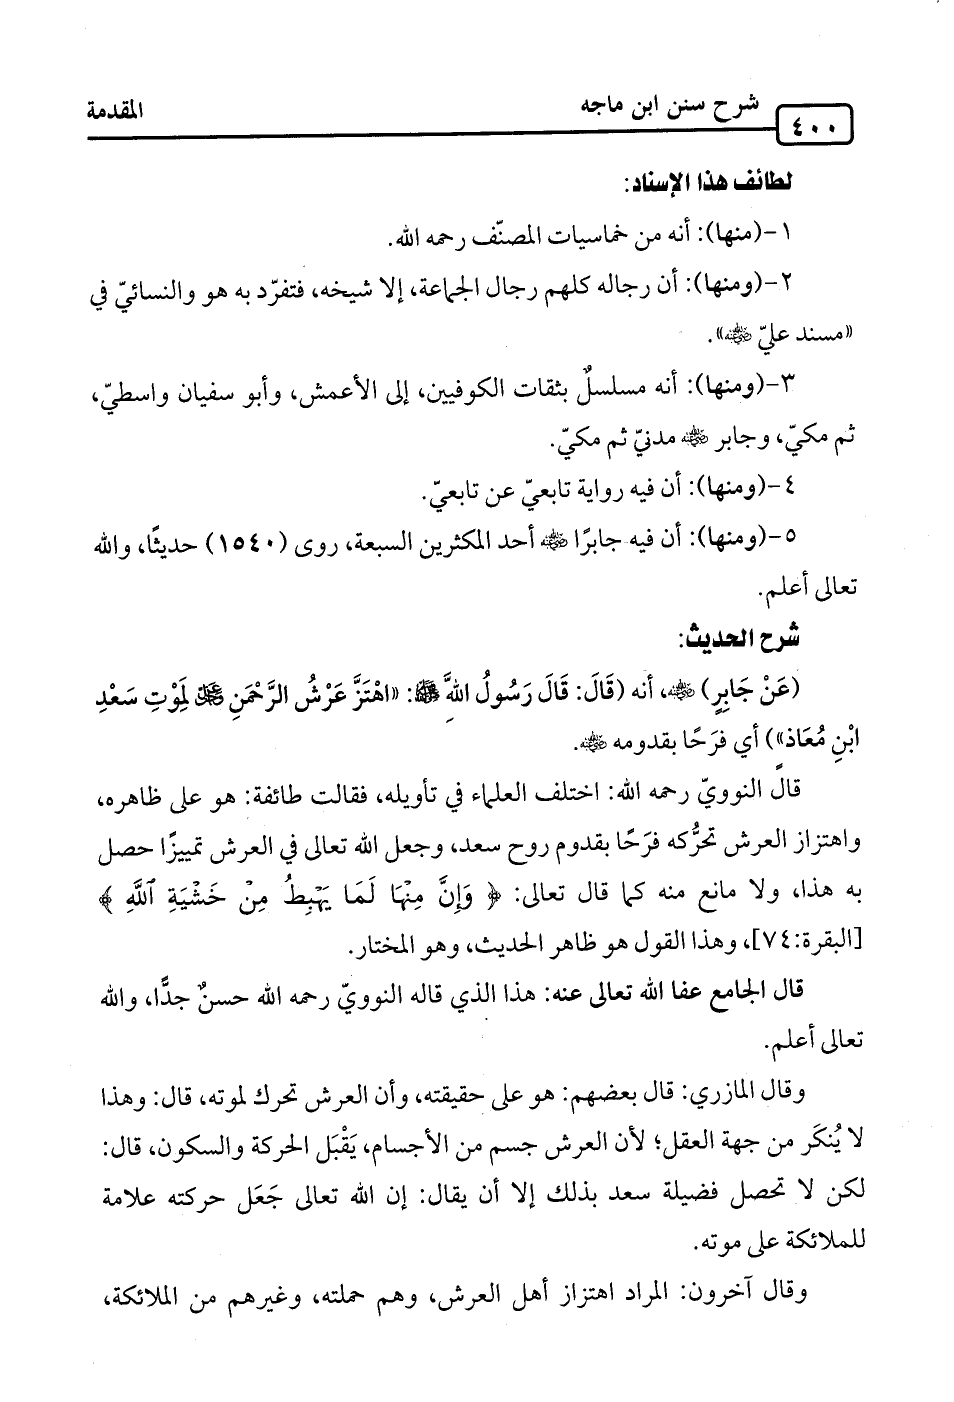 ٤٠٠ شرح سنن ابن ماجه المقدمة
لطائف هذا الإسناد:
١-(منها): أنه من خماسيات المصنّف رحمه الله.
٢-(ومنها): أن رجاله كلهم رجال الجماعة، إلا شيخه، فتفرّد به هو والنسائيّ في
«مسند عليّ ﵁».
٣-(ومنها): أنه مسلسلٌ بثقات الكوفيين، إلى الأعمش، وأبو سفيان واسطيّ،
ثم مكيّ، وجابر ﵁ مدنيّ ثم مكيّ.
٤-(ومنها): أن فيه رواية تابعيّ عن تابعيّ.
٥-(ومنها): أن فيه جابرًا ﵁ أحد المكثرين السبعة، روى (١٥٤٠) حديثًا، والله
تعالى أعلم.
شرح الحديث:
(عَنْ جَابِرٍ) ﵁، أنه (قَالَ: قَالَ رَسُولُ اللهَِّ ﷺ: «اهْتَزَّ عَرْشُ الرَّحْمَنِ ﷿ لِمَوْتِ سَعْدِ
ابْنِ مُعَاذٍ») أي فرَحًا بقدومه ﵁.
قال النوويّ رحمه الله: اختلف العلماء في تأويله، فقالت طائفة: هو على ظاهره،
واهتزاز العرش تحرُّكه فرَحًا بقدوم روح سعد، وجعل الله تعالى في العرش تمييزًا حصل
به هذا، ولا مانع منه كما قال تعالى: ﴿ وَإِنَّ مِنْهَا لَمَا يَهْبِطُ مِنْ خَشْيَةِ ٱللَّهِ ﴾
[البقرة:٧٤]، وهذا القول هو ظاهر الحديث، وهو المختار.
قال الجامع عفا الله تعالى عنه: هذا الذي قاله النوويّ رحمه الله حسنٌ جدًّا، والله
تعالى أعلم.
وقال المازري: قال بعضهم: هو على حقيقته، وأن العرش تحرك لموته، قال: وهذا
لا يُنكَر من جهة العقل؛ لأن العرش جسم من الأجسام، يَقْبَل الحركة والسكون، قال:
لكن لا تحصل فضيلة سعد بذلك إلا أن يقال: إن الله تعالى جَعَل حركته علامة
للملائكة على موته.
وقال آخرون: المراد اهتزاز أهل العرش، وهم حملته، وغيرهم من الملائكة،